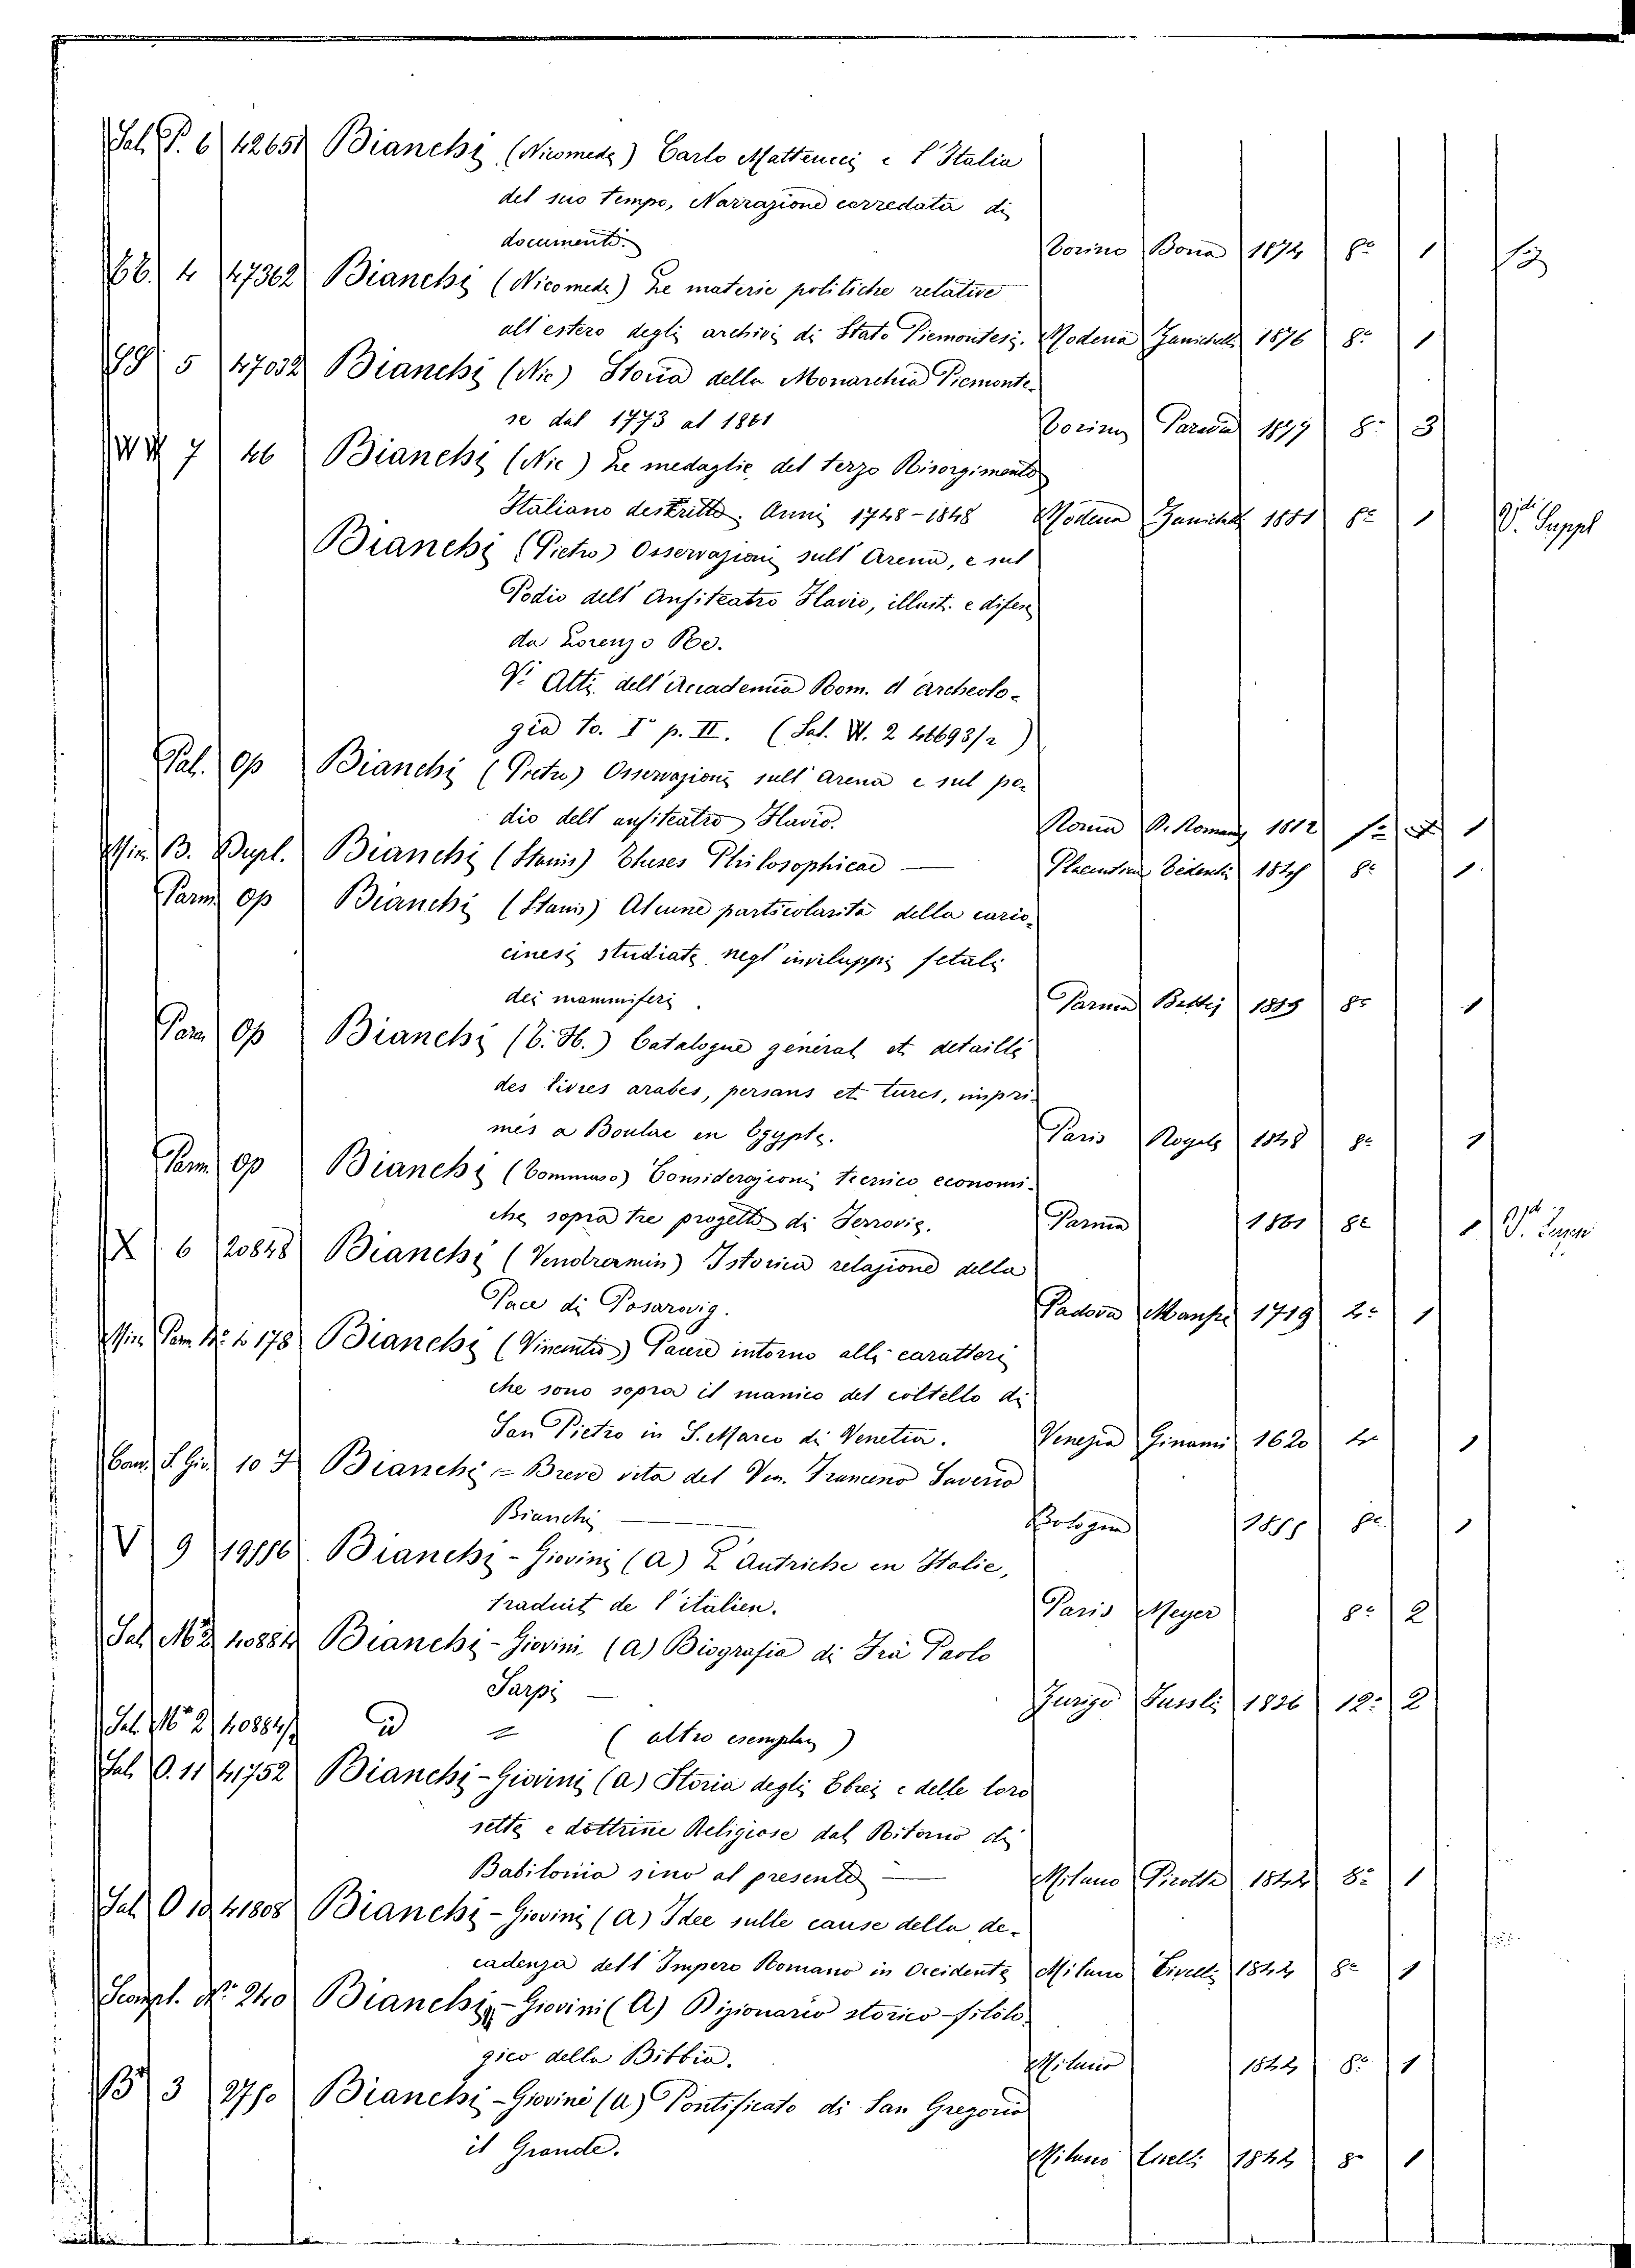 Sal. P. 6 42651 Bianchi (Nicomede) Carlo Matteucci e l'Italia
del suo tempo, Narrazione corredata di
documenti. Torino Bona 1874 8º 1
BB. 4 47362 Bianchi (Nicomede) Le materie politiche relative
all'estero degli archivi di Stato Piemontesi. Modena Zanichelli 1876 8º 1
5 47032 Bianchi (Nic) Storia della Monarchia Piemonte-
se dal 1773 al 1861 Torino 1877 8º 3
7 46 Bianchi (Nic) Le medaglie del terzo Risorgimento
Italiano descritte. Anni 1748-1848 Modena Zanichelli 1881 8º 1 Suppl
Bianchi (Pietro) Osservazioni sull'Arena, e sul
Podio dell'Anfiteatro Flavio, illust. e difese
da Lorenzo Re.
Vi Atti dell'Accademia Rom. d'archeolo-
gia to. Iº p. II. (Sal. W. 2 46693/2)
Pal. Op Bianchi (Pietro) Osservazioni sull'arena e sul po-
dio dell'anfiteatro Flavio. Roma 1812 1
Min. B. Dupl. Bianchi (Stanis) Theses Philosophicae — 8º 1
Parm Op Bianchi (Stanis) Alcune particolarità della cario-
cinesi studiate negl'inviluppi fetali
dei mammiferi. Parma Battei 1889 8º 1
Parm Op Bianchi (T. H.) Catalogue général et detaillé
des livres arabes, persans et turcs, impri-
més a Boulac en Egypte. Paris 1848 8º 1
Parm Op Bianchi (Tommaso) Considerazioni tecnico economi-
che sopra tre progetti di Ferrovie. Parma 1881 8º 1
X 6 20848 Bianchi (Vendramin) Istorica relazione della
Pace di Posarovig. Padova Manfrè 1719 4º 1
Min. Pam 178 Bianchi (Vincentio) Parere intorno alli caratteri
che sono sopra il manico del coltello di
San Pietro in S. Marco di Venetia. Venezia Ginami 1620 4º 1
10 Bianchi = Breve vita del Ven. Francesco Saverio
Bianchi — Bologna 8º 1
V 9 Bianchi-Giovini (A) L'Autriche en Italie,
traduit de l'italien. Paris Meyer 8º 2
Sal M 2 40884 Bianchi-Giovini (A) Biografia di Frà Paolo
Sarpi — Zurigo Fussli 1836 12º 2
Sal. M 2 40884/2 = (altro esemplare)
Sal. O. 11 41752 Bianchi-Giovini (A) Storia degli Ebrei e delle loro
sette e dottrine Religiose dal Ritorno di
Babilonia sino al presente — Milano Pirotta 1844 8º 1
Sal O 12 41808 Bianchi-Giovini (A) Idee sulle cause della de-
cadenza dell'Impero Romano in Occidente Milano Civelli 1844 8º 1
Scompl. Nº 240 Bianchi-Giovini (A) Dizionario storico-filolo-
gico della Bibbia. Milano 1844 8º 1
3 Bianchi-Giovini (A) Pontificato di San Gregorio
il Grande. Milano Civelli 1844 8º 1